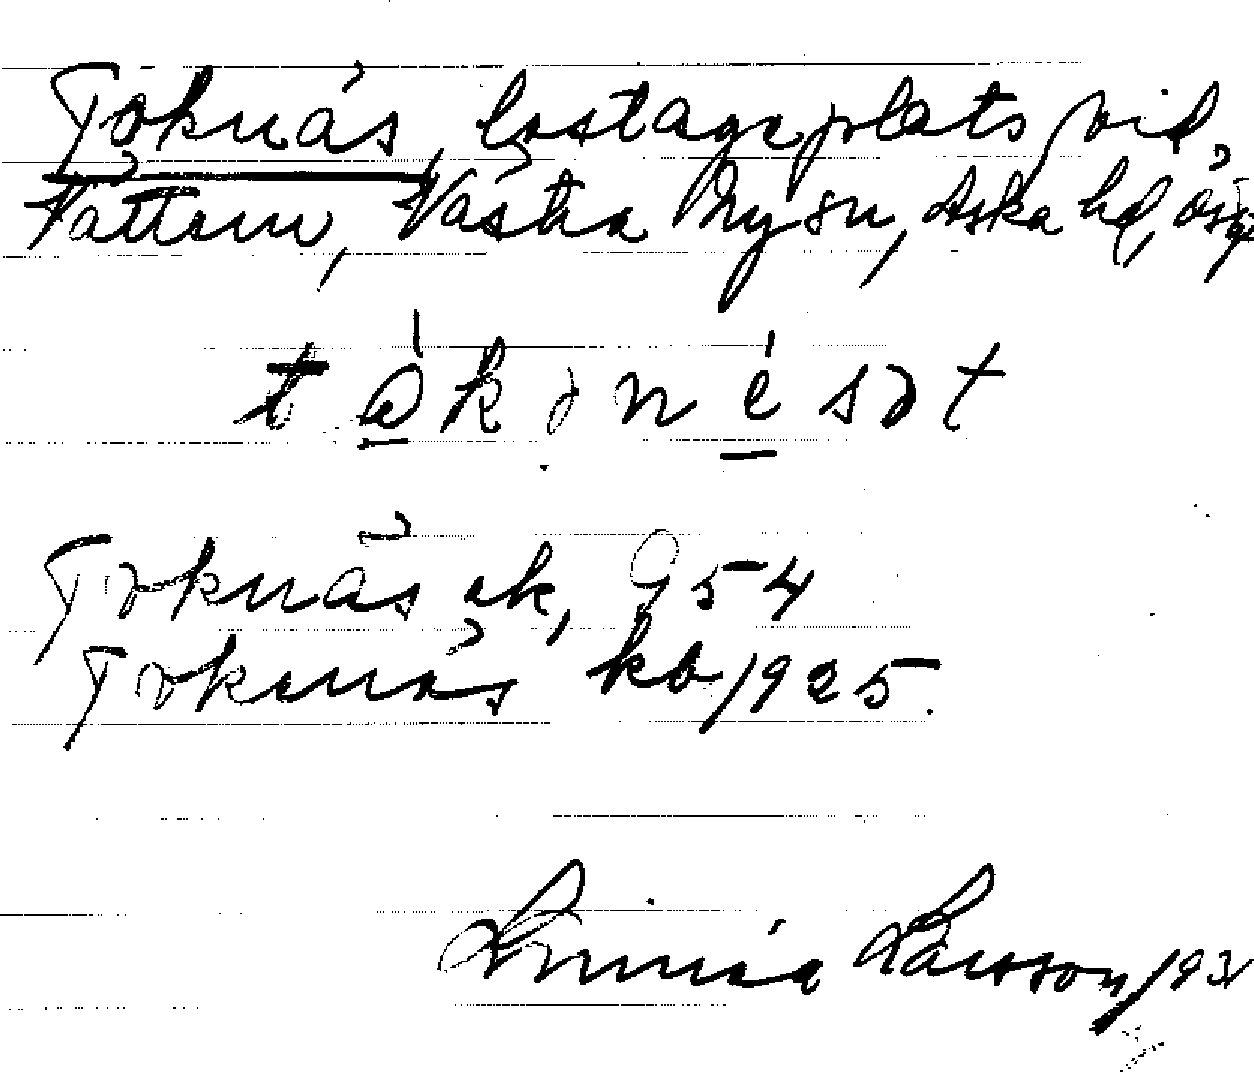 Toknäs, lastageplats vid
Vättern, Västra Ny sn, Aska hd, Ög
tåkənésət
Toknäs ek, 954
Toknäs kb 1925.
Linnéa Larsson, 193